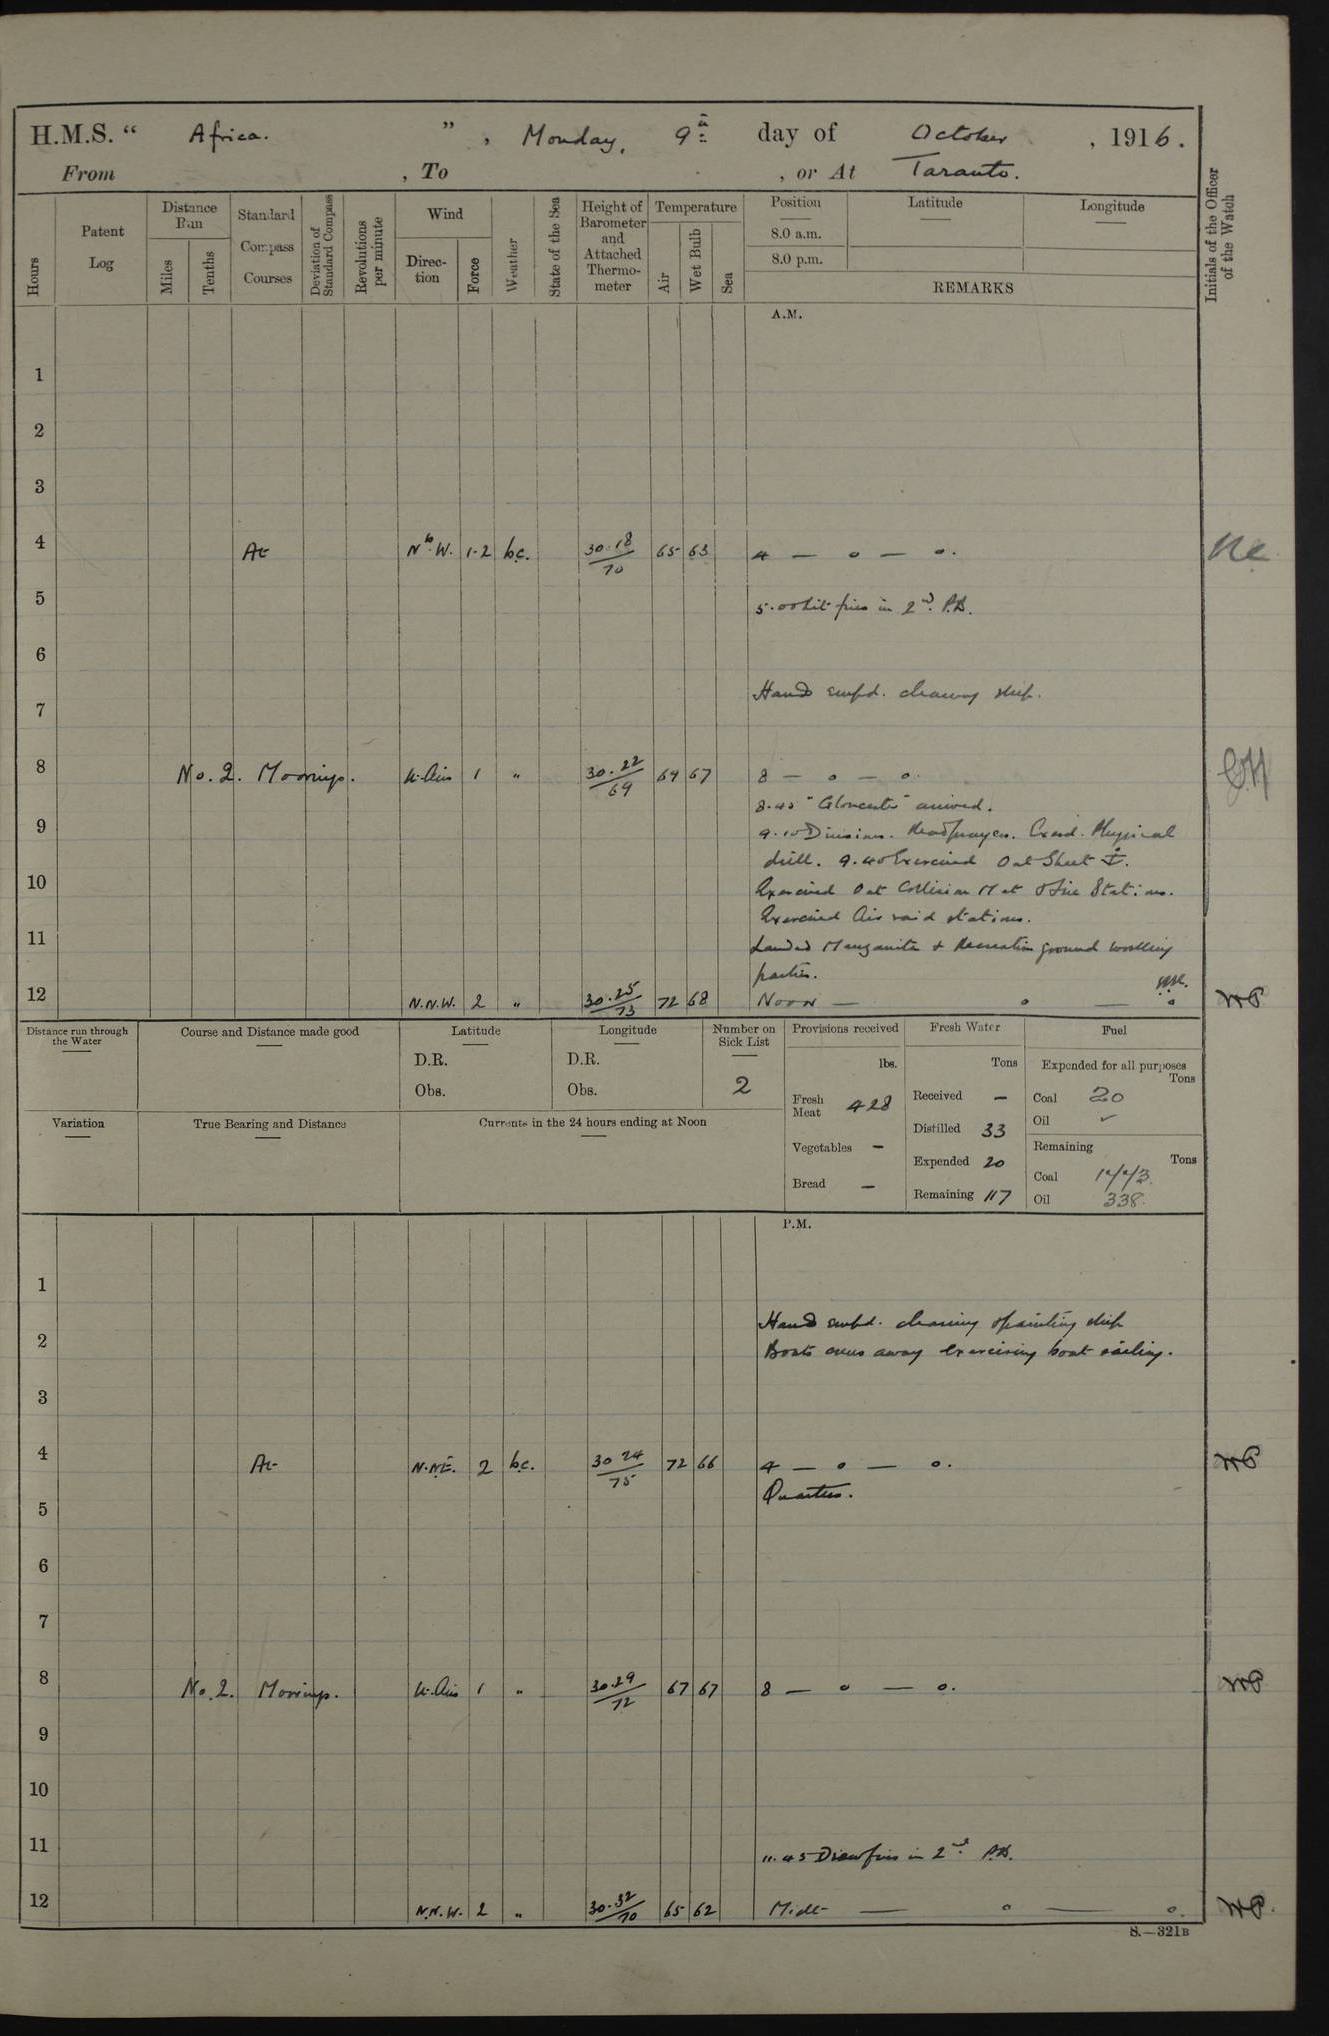 H.M.S. “ Africa. ” , Monday, 9th day of October , 1916.
From , To , or At Taranto.
Hours
Patent Log
Distance Run
Miles
Tenths
Standard Compass Courses
Deviation of Standard Compass
Revolutions per minute
Wind
Direction
Force
Weather
State of the Sea
Height of Barometer and Attached Thermometer
Temperature
Air
Wet Bulb
Sea
Position
8.0 a.m.
8.0 p.m.
Latitude
Longitude
REMARKS
Initials of the Officer of the Watch
A.M.
1
2
3
4 At N b. W. 1-2 b.c. 30.18/70 65 63 4 — o — o.
5 5.00 Lit fires in 2nd. P.B.
6
Hands empd. cleaning ship.
7
8 No. 2. Moorings. Lt. Airs 1 " 30.22/69 69 67 8 — o — o.
8.40 "Gloucester" arrived.
9 9.10 Divisions. Read prayers. Exerd. Physical
drill. 9.40 Exercised Out Sheet Ir.
10 Exercised Out Collision Mat & Fire Stations.
Exercised Air raid stations.
11 Landed Marguerita & Recreation ground working
parties.
12 N.N.W. 2 " 30.25/73 72 68 Noon — o — o
Distance run through the Water
Course and Distance made good
Latitude
D.R.
Obs.
Longitude
D.R.
Obs.
Number on Sick List
2
Provisions received
lbs.
Fresh Meat 428
Vegetables —
Bread —
Fresh Water
Tons
Received —
Distilled 33
Expended 20
Remaining 117
Fuel
Expended for all purposes
Tons
Coal 20
Oil ✓
Remaining
Tons
Coal
Oil 338
Variation
True Bearing and Distance
Currents in the 24 hours ending at Noon
P.M.
1
Hands empd. cleaning & painting ship
2 Boats crews away exercising boat sailing.
3
4 At N.N.E. 2 b.c. 30 24/75 72 66 4 — o — o.
Quarters.
5
6
7
8 No. 2. Moorings. Lt. Airs 1 " 30.29/72 67 67 8 — o — o.
9
10
11 11.45 Drew fires in 2nd. P.B.
12 N.N.W. 2 " 30.32/70 65 62 Midt — o — o.
S.—321B